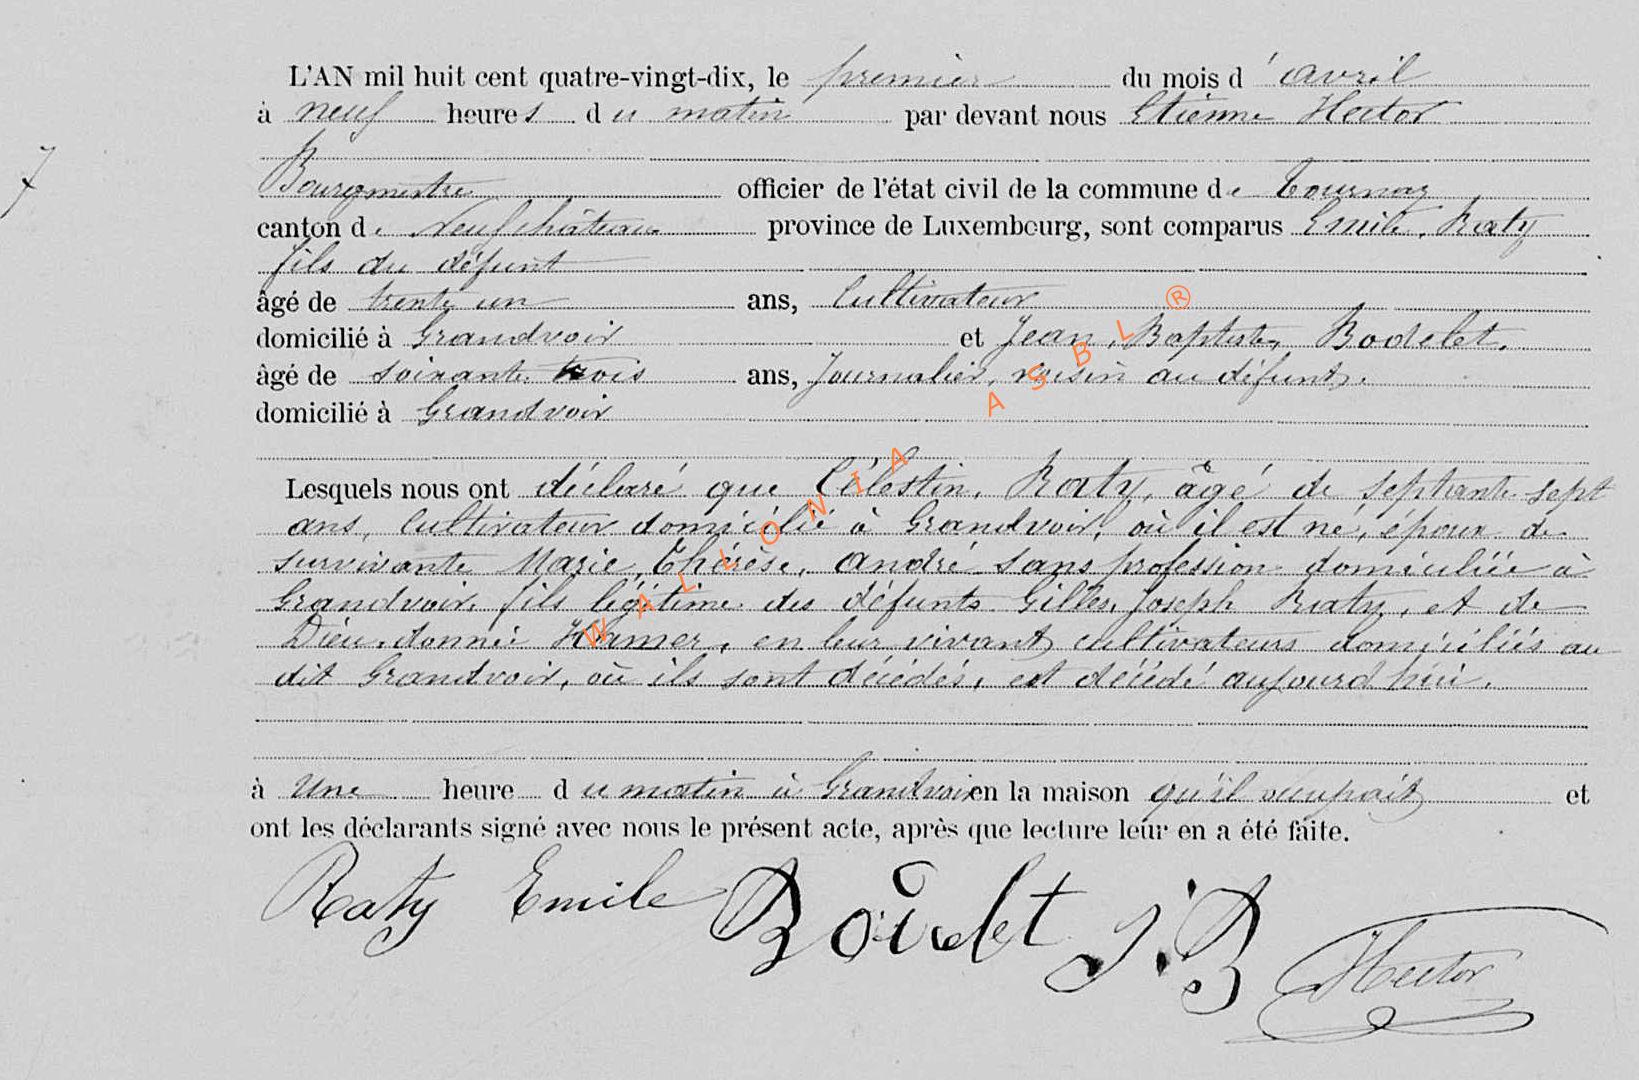 L'AN mil huit cent quatre-vingt-dix, le premier du mois d'avril
à neuf heures du matin par devant nous Etienne Hector
7
Bourgmestre officier de l'état civil de la commune de Tournay
canton de Neufchâteau province de Luxembourg, sont comparus Emile, Raty
fils du défunt
âgé de trente un ans, Cultivateur
domicilié à Grandvoir et Jean, Baptiste, Bodelet,
âgé de soixante trois ans, Journalier, voisin au défunt,
domicilié à Grandvoir
Lesquels nous ont déclaré que Célestin, Raty, âgé de septante sept
ans, Cultivateur domicilié à Grandvoir, où il est né, époux de
survivante Marie, Thérèse, André sans profession domiciliée à
Grandvoir, fils légitime des défunts Gilles, Joseph Raty, et de
Dieu-donnée Hamer, en leur vivant cultivateurs domiciliés au
dit Grandvoir, où ils sont décédés, est décédé aujourd'hui.
à Une heure du matin à Grandvoir en la maison qu'il occupait et
ont les déclarants signé avec nous le présent acte, après que lecture leur en a été faite.
Raty Emile Bodelet J.B Hector
WALLONIA ASBL ®